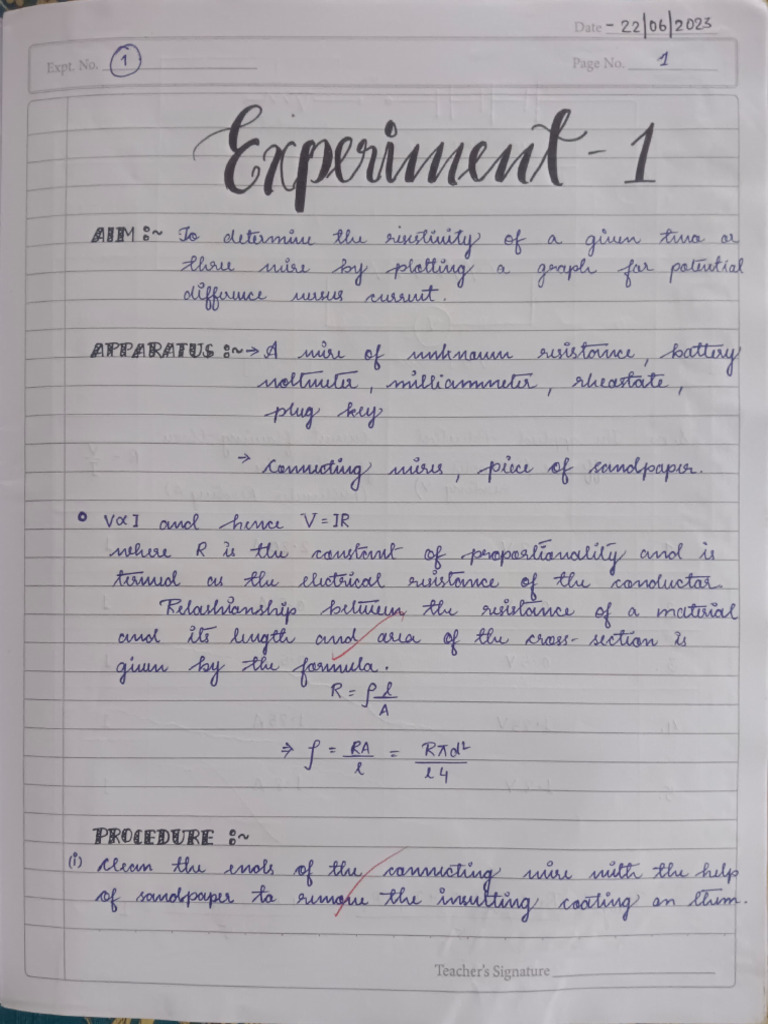 Date - 22/06/2023
Expt. No. 1
Page No. 1
Experiment - 1
AIM :~ To determine the resistivity of a given two or
three wire by plotting a graph for potential
difference versus current.
APPARATUS :~ → A wire of unknown resistance, battery
voltmeter, milliammeter, rheostate,
plug key
→ Connecting wires, piece of sandpaper.
V∝I and hence V=IR
where R is the constant of proportionality and is
termed as the electrical resistance of the conductor.
Relashionship between the resistance of a material
and its length and area of the cross-section is
given by the formula.
R = ρ l/A
⇒ ρ = RA/l = Rπd²/l4
PROCEDURE :~
(i) Clean the ends of the connecting wire with the help
of sandpaper to remove the insulting coating on them.
Teacher's Signature